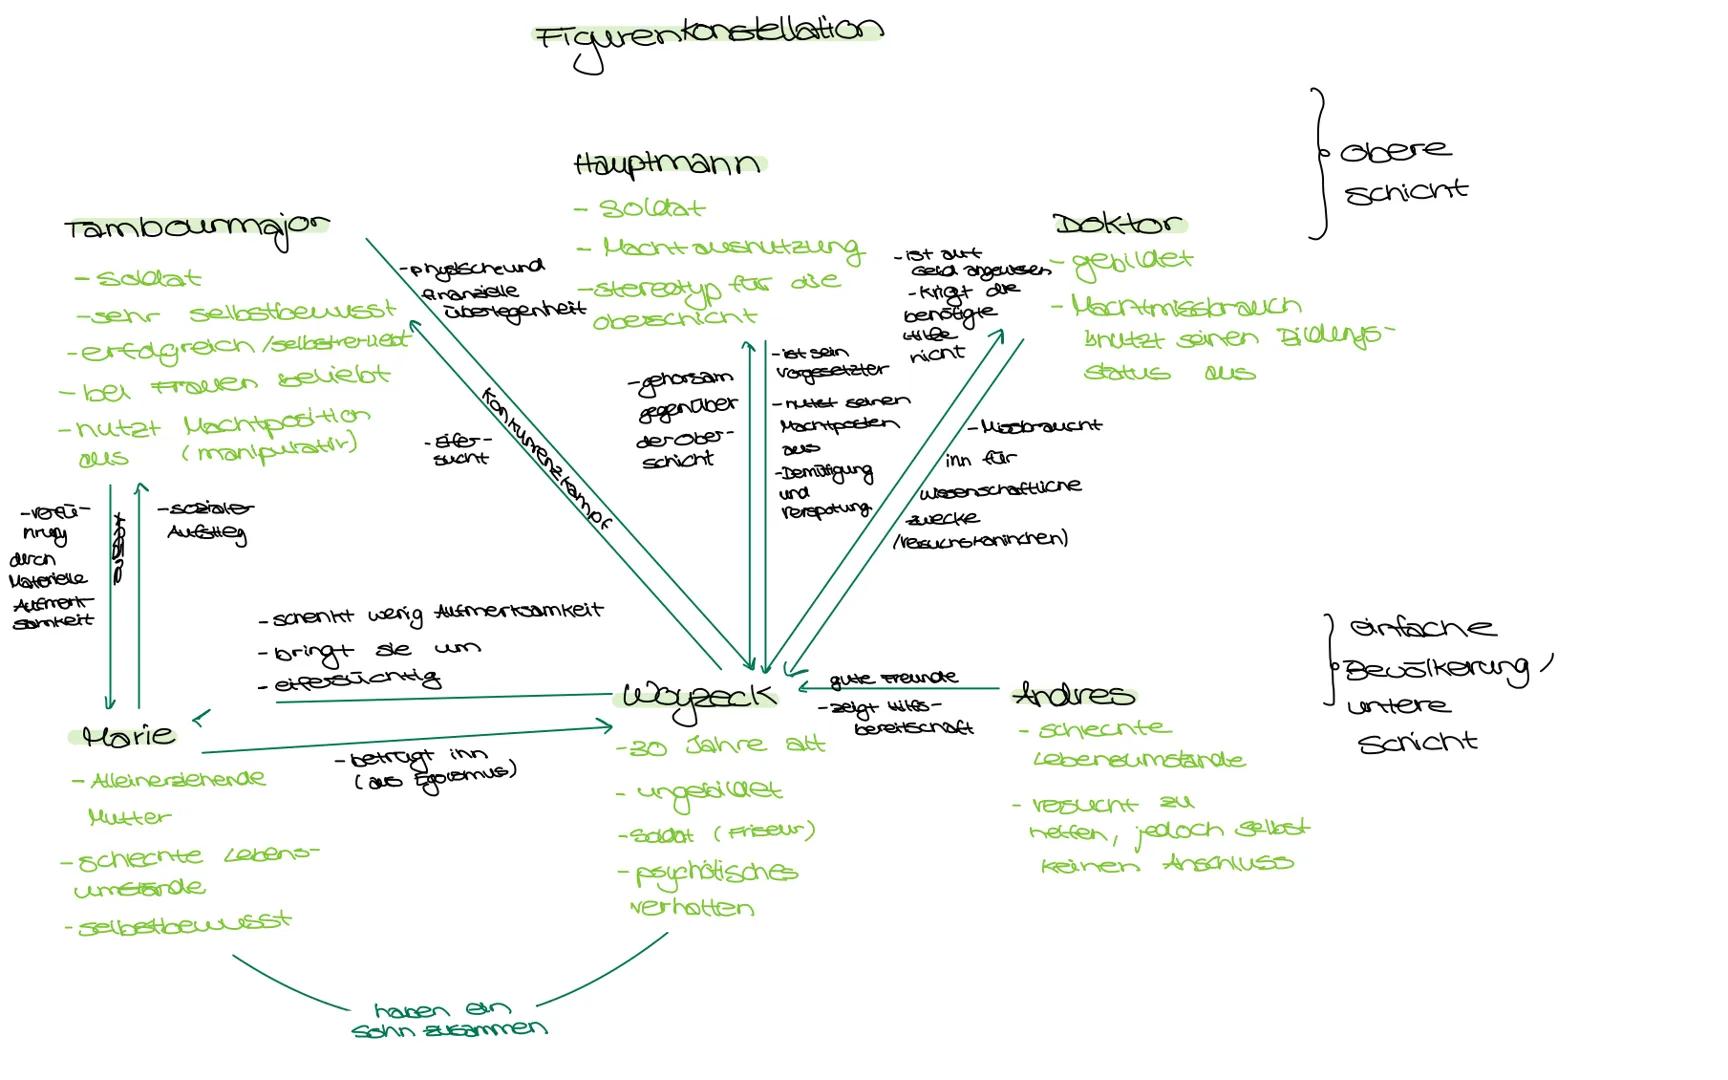 Figurenkonstellation
Hauptmann
- Soldat
- Machtausnutzung
- stereotyp für die
oberschicht
Tambourmajor
- Soldat
- sehr selbstbewusst
- erfolgreich / selbstverliebt
- bei Frauen beliebt
- nutzt Machtposition
aus (manipulativ)
Doktor
- gebildet
- Machtmissbrauch
nutzt seinen Bildungs-
status aus
obere
schicht
- physische und
finanzielle
überlegenheit
- eifer-
sucht
Konkurrenzkampf
- gehorsam
gegenüber
der Ober-
schicht
- ist sein
vorgesetzter
- nutzt seinen
Machtposten
aus
- Demütigung
und
verspotung
- ist auf
Geld angewiesen
- krigt die
benötigte
Hilfe
nicht
- Missbraucht
ihn für
wissenschaftliche
zwecke
(Versuchskaninchen)
- verfü-
hrung
durch
Materielle
Aufmerk-
samkeit
- sozialer
Aufstieg
- schenkt wenig Aufmerksamkeit
- bringt sie um
- eifersüchtig
- betrügt ihn
(aus Egoismus)
gute Freunde
- zeigt Hilfs-
bereitschaft
Marie
- Alleinerziehende
Mutter
- schlechte Lebens-
umstände
- selbstbewusst
Woyzeck
- 30 Jahre alt
- ungebildet
- Soldat (Friseur)
- psychotisches
verhalten
Andres
- schlechte
Lebensumstände
- versucht zu
helfen, jedoch selbst
keinen Anschluss
einfache
Bevölkerung,
untere
Schicht
haben ein
Sohn zusammen